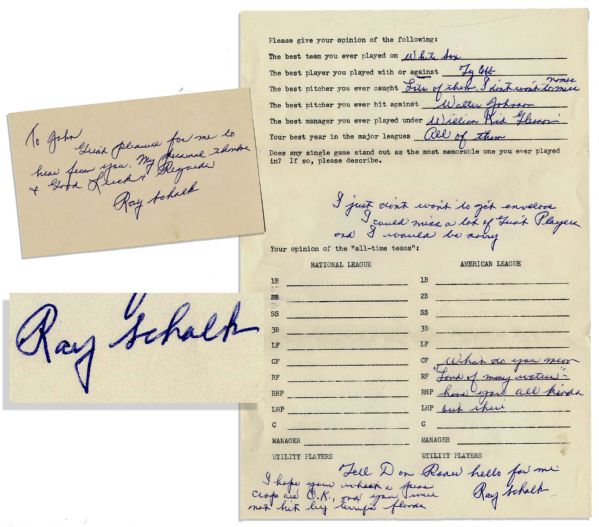 To John
Great pleasure for me to
hear from you. My personal thanks
& Good Luck & Regards
Ray Schalk
Ray Schalk
Please give your opinion of the following:
The best team you ever played on White Sox
The best player you played with or against Ty Cobb
The best pitcher you ever caught Lots of them I don't want to miss names
The best pitcher you ever hit against Walter Johnson
The best manager you ever played under William Kid Gleason
Your best year in the major leagues All of them
Does any single game stand out as the most memorable one you ever played
in? If so, please describe.
I just don't want to get
I could miss a lot of Great Players
and I would be sorry
Your opinion of the "all-time teams":
NATIONAL LEAGUE AMERICAN LEAGUE
1B 1B
2B 2B
SS SS
3B 3B
LF LF
CF CF What do you mean
RF RF "Land of many waters"-
RHP RHP have you all kinds
LHP LHP out there
C C
MANAGER MANAGER
UTILITY PLAYERS UTILITY PLAYERS
Tell Don hello for me
Ray Schalk
I hope your wheat & peas
crops are O.K., and you were
not hit by floods